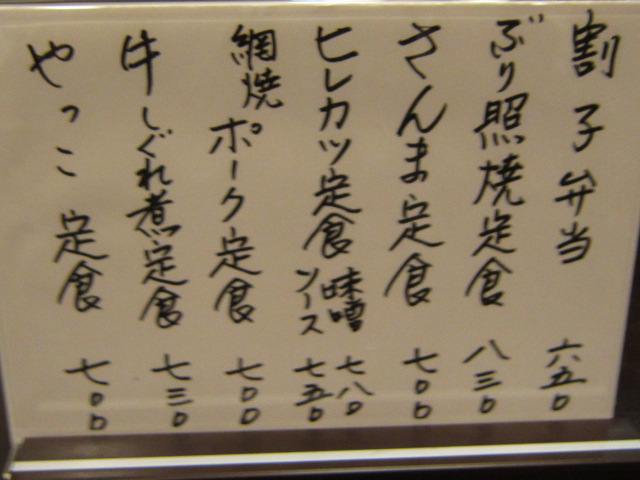 割子弁当 六五〇
ぶり照焼定食 八三〇
さんま定食 七〇〇
ヒレカツ定食 味噌 七八〇
ソース 七五〇
網焼ポーク定食 七〇〇
牛しぐれ煮定食 七三〇
やっこ定食 七〇〇